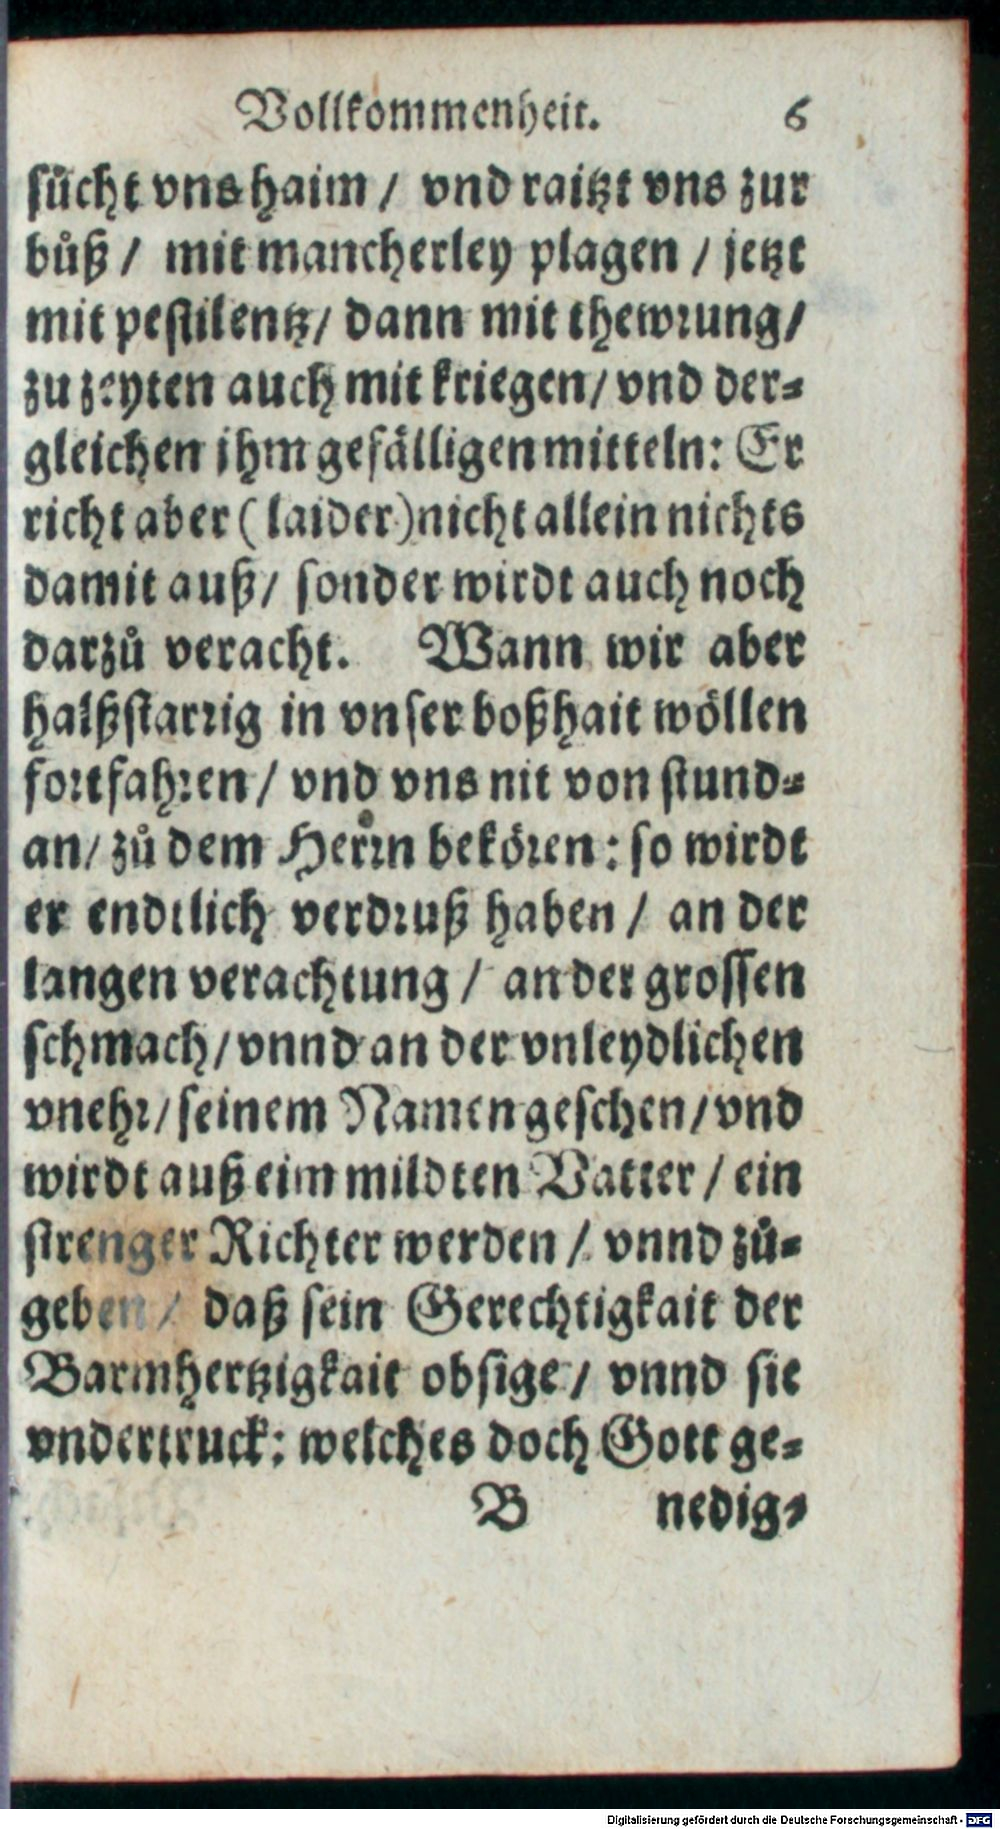 Vollkommenheit. 6
sůcht vns haim / vnd raitzt vns zur
bůß / mit mancherley plagen / jetzt
mit pestilentz / dann mit thewrung /
zu zeyten auch mit kriegen / vnd der-
gleichen jhm gefälligen mitteln: Er
richt aber (laider) nicht allein nichts
damit auß / sonder wirdt auch noch
darzů veracht. Wann wir aber
halßstarrig in vnser boßhait wöllen
fortfahren / vnd vns nit von stund-
an / zů dem Herrn bekören: so wirdt
er endtlich verdruß haben / an der
langen verachtung / an der grossen
schmach / vnnd an der vnleydlichen
vnehr / seinem Namen geschen / vnd
wirdt auß eim mildten Vatter / ein
strenger Richter werden / vnnd zů-
geben / daß sein Gerechtigkait der
Barmhertzigkait obsige / vnnd sie
vndertruck: welches doch Gott ge-
B nedig-
Digitalisierung gefördert durch die Deutsche Forschungsgemeinschaft - DFG